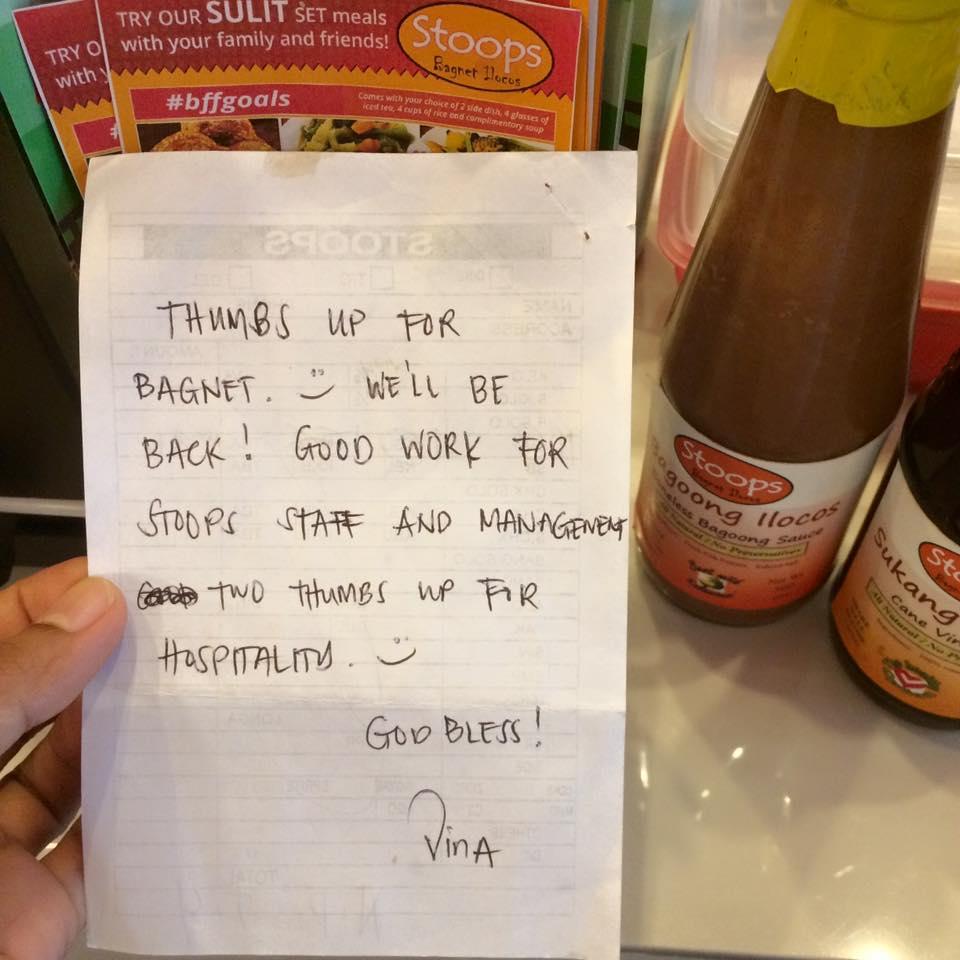 TRY OUR SULIT SET meals
with your family and friends!
Stoops
Bagnet Ilocos
#bffgoals
Comes with your choice of 2 side dish, 4 glasses of
iced tea, 4 cups of rice and complimentary soup
TRY O
with y
STOOPS
THUMBS UP FOR
BAGNET. WE'LL BE
BACK! GOOD WORK FOR
STOOPS STAFF AND MANAGEMENT
TWO THUMBS UP FOR
HOSPITALITY.
GOD BLESS!
VinA
Stoops
Bagoong Ilocos
Boneless Bagoong Sauce
All Natural / No Preservatives
Sto
Sukang
Cane Vin
All Natural / No Pre